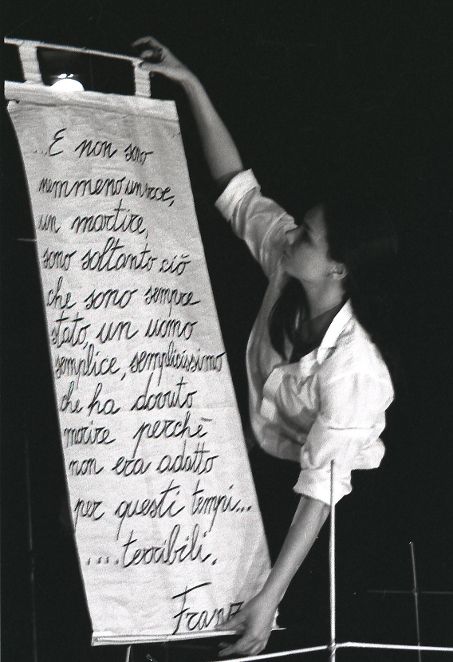 ...E non sono
nemmeno un eroe,
un martire,
sono soltanto ciò
che sono sempre
stato, un uomo
semplice, semplicissimo
che ha dovuto
morire perchè
non era adatto
per questi tempi...
....terribili.
Franz